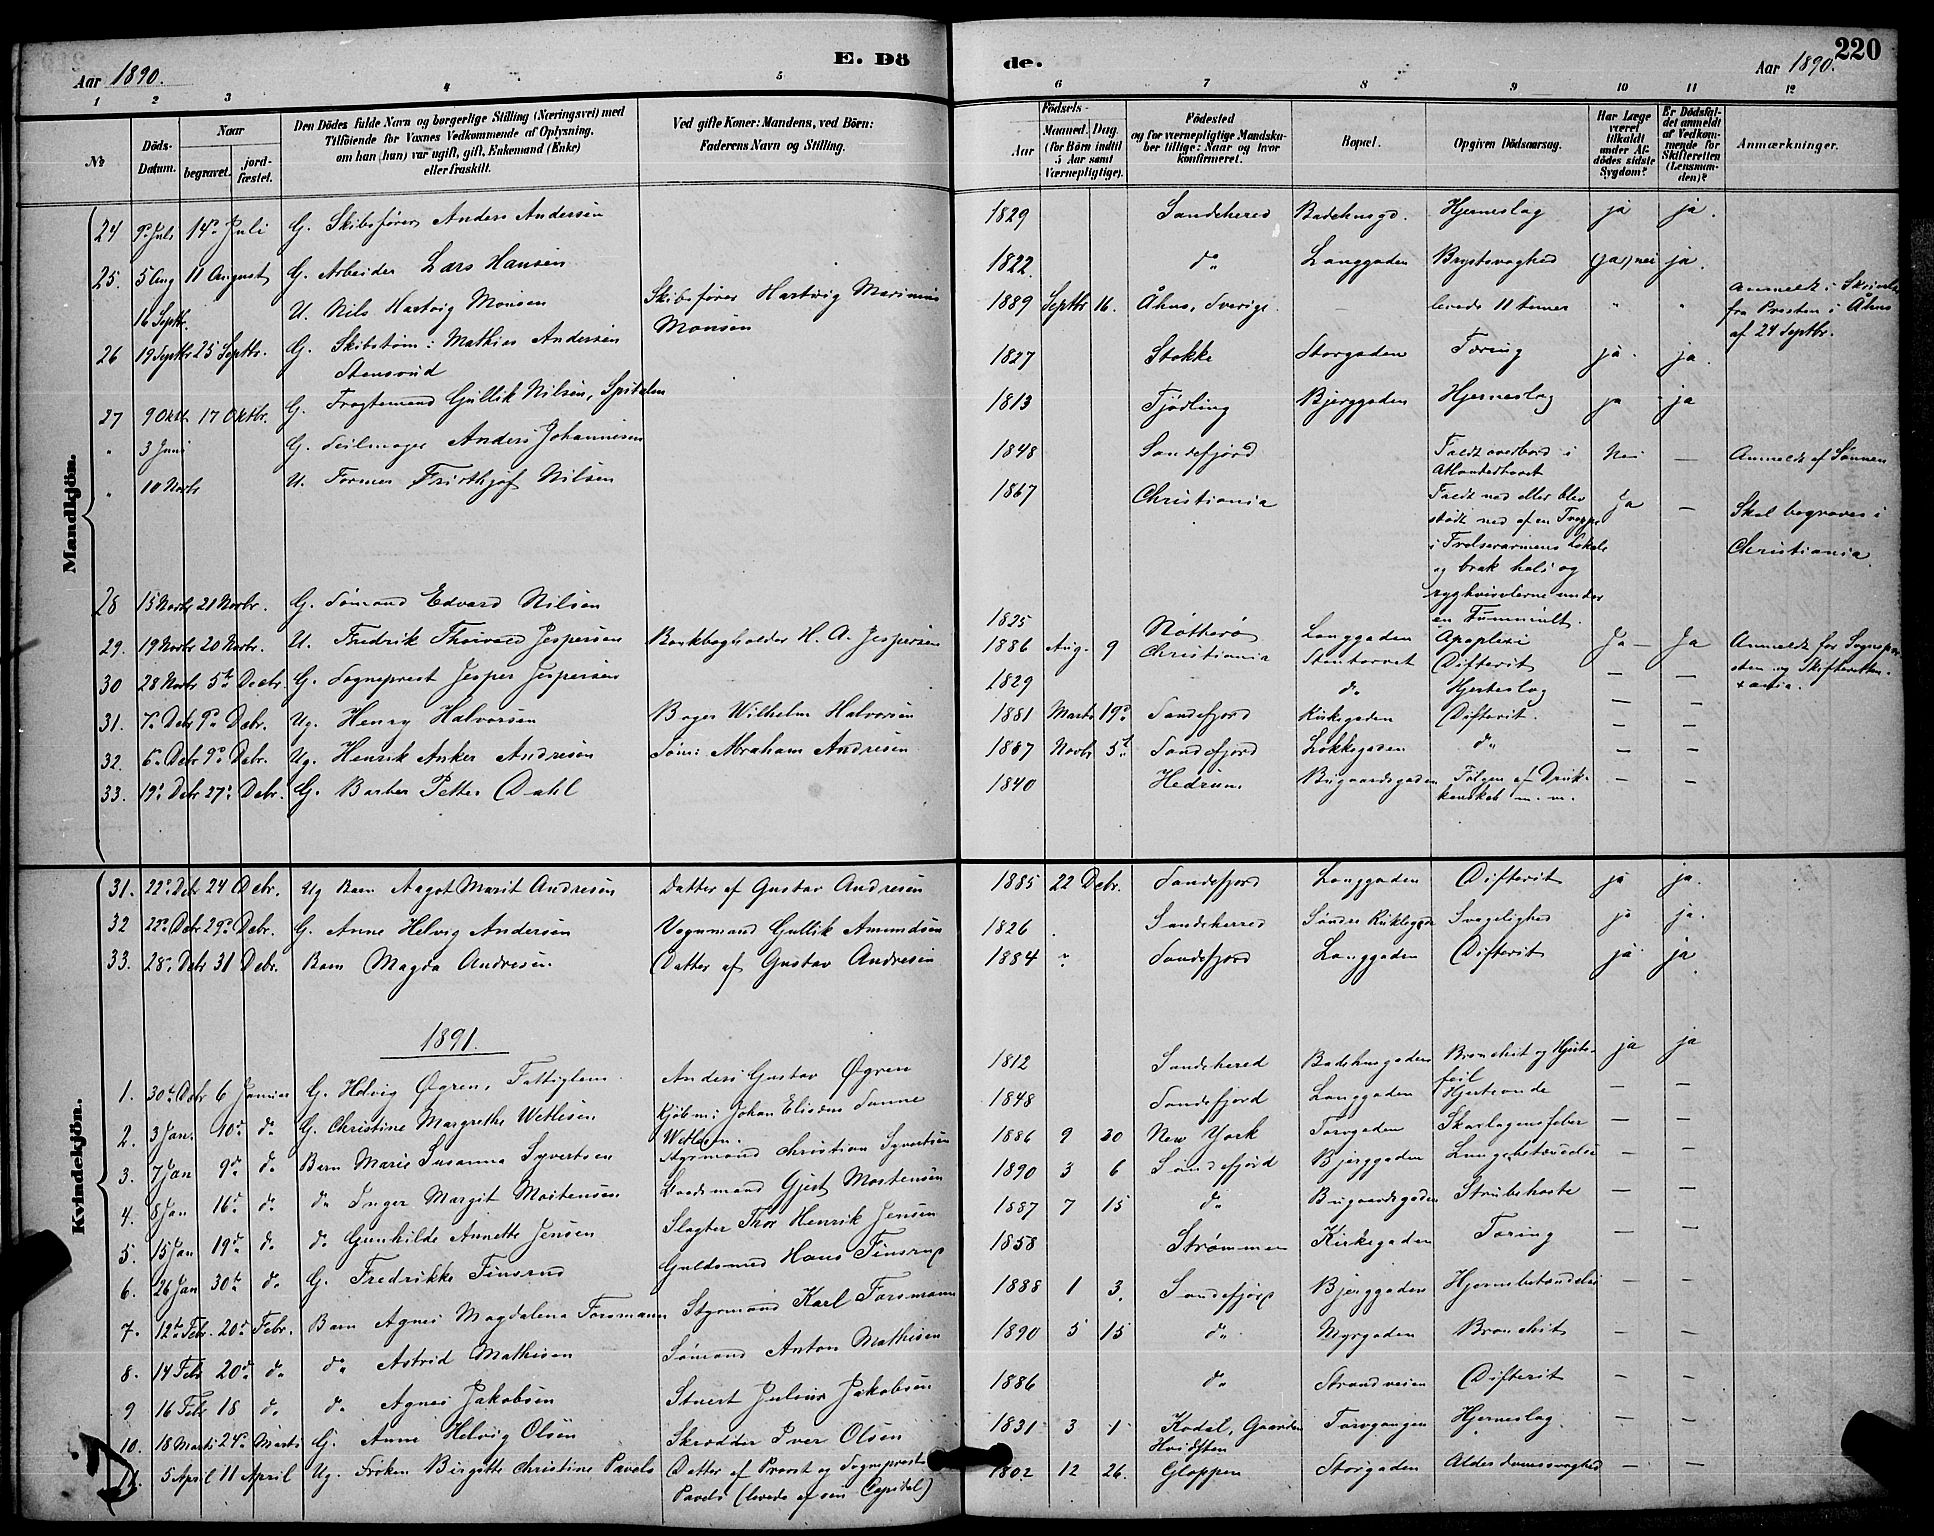 220
E. Dö
de.
Aar 1890.
Aar 1890.
1 2 3 4 5 6 7 8 9 10 11 12
No
Döds-Datum.
Naar
begravet.
jordfæstet.
Den Dödes fulde Navn og borgerlige Stilling (Næringsvei) med
Tilföiende for Voxnes Vedkommende af Oplysning,
om han (hun) var ugift, gift, Enkemand (Enke)
eller fraskilt.
Ved gifte Koner: Mandens, ved Börn:
Faderens Navn og Stilling.
Födsels-
Aar
Maaned. Dag.
(for Börn indtil
5 Aar samt
Værnepligtige).
Födested
og for værnepligtige Mandskaber
tillige: Naar og hvor
konfirmeret.
Bopæl.
Opgiven Dödsaarsag.
Har Læge
været
tilkaldt
under Afdödes
sidste
Sygdom?
Er Dödsfaldet
anmeldt
af Vedkommende
for
Skifteretten
(Lensmanden)?
Anmærkninger.
Mandkjön.
24 9de Juli 14de Juli G. Skibsfører Anders Andersen 1829 Sandeherred Badehusgd. Hjerneslag ja ja.
25. 5 Aug 11 August G. Arbeider Lars Hansen 1822 do Langgaden Brystsvaghed (ja) nei ja.
16 Septbr. U. Nils Hartvig Monsen Skibsfører Hartvig Marinius Monsen 1889 Septbr 16. Åhus, Sverige. levede 11 timer " " Anmeldt i Skrivelse fra Presten i Åhus af 24 Septbr.
26 19 Septbr 25 Septbr. G. Skibstøm: Mathias Andersen Stensrud 1827 Stokke Storgaden Tæring ja. ja.
27 9 Oktbr 17 Oktbr. G. Fragtemand Gullik Nilsen, Spitalen 1813 Tjødling Bjerggaden Hjerneslag ja ja
" 3 Juni G. Seilmager Anders Johannesen 1848 Sandefjord Faldt overbord i Atlanterhavet Nei — Anmeldt af Sønnen
" 10 Novbr U. Former Frithjof Nilsen 1867 Christiania Faldt ned eller blev stødt ned af en Trappe i Frelserarmeens Lokale og brak hals og ryghvirvlerne under en Tummult. Ja — Skal begraves i Christiania.
28 15 Novbr 21 Novbr. G. Sømand Edvard Nilsen 1825 Nøtterø Langgaden Apoplexi Ja — Ja
29. 19 Novbr 20 Novbr. U. Fredrik Thorvald Jespersen Bankbogholder H. A. Jespersen 1886 Aug. 9 Christiania Stentorvet Difterit Anmeldt for Sognepresten og Skifteretten.
30 28 Novbr 5te Decbr. G. Sogneprest Jesper Jespersen 1829 do Hjerteslag — —
31. 7de Debr 9de Debr. Ug. Henry Halvorsen Bager Wilhelm Halvorsen 1881 Marts 19de Sandefjord Kirkegaden Difterit. — —
32. 6te Debr 9de Debr. Ug. Henrik Anker Andresen Søm: Abraham Andresen 1887 Novbr 5te Sandefjord Løkkegaden do — —
33. 19de Debr 27de Debr. G. Barber Petter Dahl 1840 Hedrum. Bugaardsgaden Følgen af Drukkenskab m. m. — —
Kvindekjön.
31. 22de Debr 24 Debr. Ug Barn Aagot Marit Andresen Datter af Gustav Andresen 1885 22 Debr. Sandefjord Langgaden Difterit ja ja.
32 22de Debr 29de Debr. G. Anne Helvig Andersen Vognmand Gullik Amundsen 1826 Sandeherred Sønder Svagelighed ja ja.
33. 28de Debr 31 Debr. Barn Magda Andresen Datter af Gustav Andresen 1884 " Sandefjord Langgaden Difterit ja ja
1891.
1. 30te Debr 6 Januar G. Helvig Øgren, Fattiglem. Anders Gustav Øgren 1812 Sandeherred Badehusgaden Bronchit og Hjertefeil ja ja
2. 3 Jan. 10de do G. Christine Margrethe Wetlesen Kjøbm: Johan Elisæus Sanne Wetlesen. 1848 Sandefjord Langgaden Hjerteonde — —
3. 7 Jan 9de do Barn Marie Susanna Syvertsen Styrmand Christian Syvertsen 1886 9 30 New York Torvgaden Skarlagensfeber — —
4. 8 Jan 16de do do Inger Margit Mortensen Baadsmand Gjest Mortensen 1890 3 6 Sandefjord Bjerggaden Lungebetændelse — —
5. 15 Jan 19de do do Gunhilde Annette Jensen Slagter Thor Henrik Jensen 1887 7 15 do Bugaardsgaden Strubehoste — —
6. 26 Jan 30te do G. Fredrikke Finsrud Guldsmed Hans Finsrud 1858 Strømmen Kirkegaden Tæring — —
7. 12te Febr. 20de Febr. Barn Agnes Magdalena Forsmann Styrmand Karl Forsmann 1888 1 3. Sandefjord Bjerggaden Hjernebetændelse — —
8. 14 Febr 20de do do Astrid Mathisen Sømand Anton Mathisen 1890 5 15 do Myrgaden Bronchit — —
9 16 Febr 18 do do Agnes Jakobsen Stuert Julius Jakobsen 1886 do Strandveien Difterit — —
10. 18 Marts 24de Marts G. Anne Helvig Olsen Skrædder Iver Olsen 1831 3 1 Kodal, Gaarden Hvidsten Torvgangen Hjerneslag. — —
11. 5 April 11 April Ug. Frøken Birgitte Christine Pavels Datter af Provst og Sogneprest Pavels (levede af sin Capital) 1802 12 26. Gloppen Storgaden Alderdomssvaghed — —